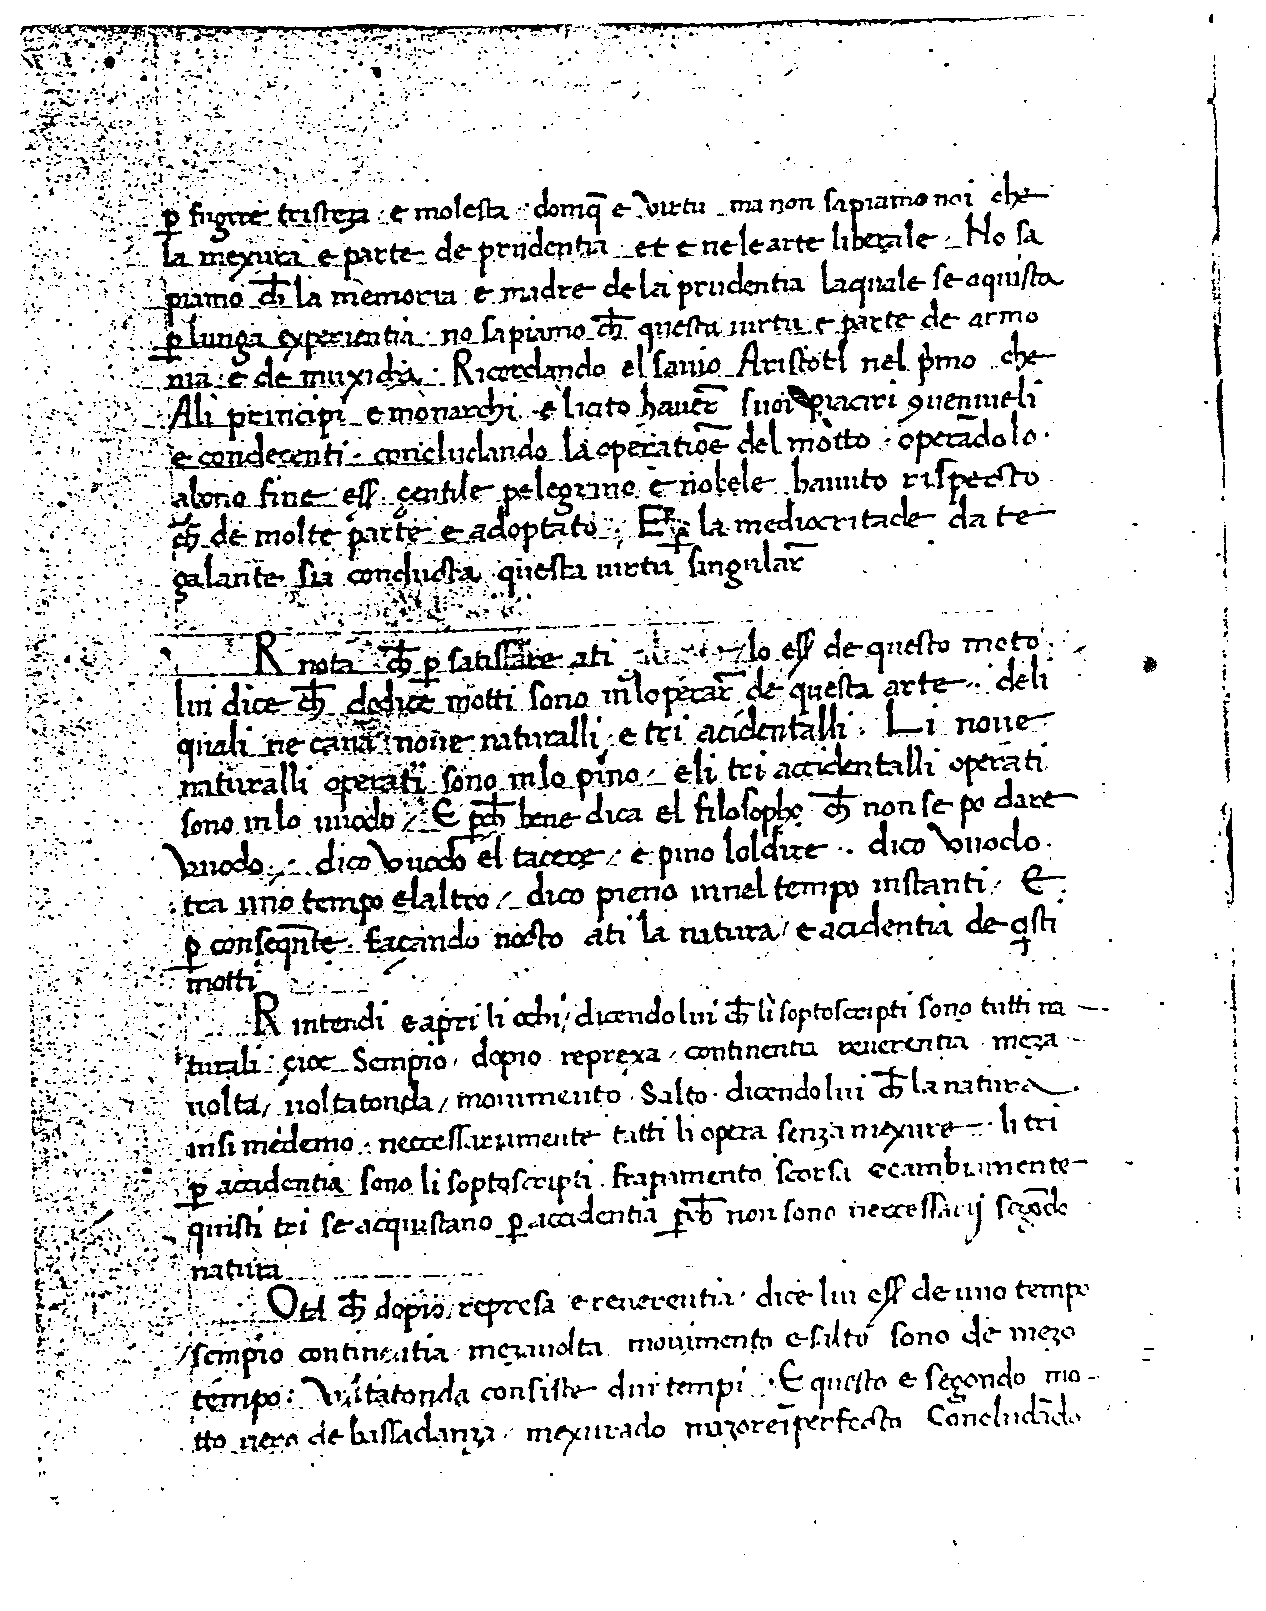 ꝑ fugire tristeza · e molesta · domq̄ e virtu ma non sapiamo noi che
la mexura e parte de prudentia et e ne le arte liberale · No sa
piamo ch̄ la memoria e madre de la prudentia laquale se aquista
ꝑ lunga experientia · no sapiamo ch̄ questa uirtu e parte de armo
nia e de muxicha · Ricordando el sauio Aristotl nel pͥmo che
Ali principi e monarchi e licito hauer̄ suoi piaciri ꝯueniueli
e condecenti · concludando la operatiōe del motto · operādolo ·
abono fine eſſ gentile pelegrino e nobele hauuto rispecto
ch̄ de molte parte e adoptato · E ꝑ la mediocritade da te
galante sia conducta questa uirtu singular̄
R nota ch̄ ꝑ satisffare ati lo eſſ de questo moto
lui dice ch̄ dodice motti sono in loperar̄ de questa arte · deli
quali ne caua noue naturalli · e tri acidentalli · Li noue
naturalli operati sono in lo pino / e li tri accidentalli operati
sono in lo uuodo / E ꝑch̄ bene dica el filosopho ch̄ non se po dare
Vuodo / dico Vuodo el tacere / e pino loldire · dico Vuodo ·
tra uno tempo e laltro / dico pieno innel tempo instanti / E
ꝑ conseqn̄te façando nosto ati la natura / e acidentia de q̄sti
motti
R intendi e apri li ochi / dicendo lui ch̄ li soptoscripti sono tutti na
turali · çioe Sempio · dopio reprexa / continentia reuerentia meza
uolta / uoltatonda / mouimento · Salto · dicendo lui ch̄ la natura
in si medemo · neccessariamente tutti li opera senza mexure · li tri
ꝑ accidentia sono li soptoscripti frapamento scorsa e cambiamente
quisti tri se acquistano ꝑ accidentia ꝑch̄ non sono neccessarij segōdo
natura
Otͣl ch̄ dopio / represa e reuerentia · dice lui eſſ de uno tempo
/ sempio continentia mezauolta mouimento e salto sono de mezo
tempo : Vultatonda consiste dui tempi · E questo e segondo mo-
tto uero de bassadanza / mexurado mazore īperfecto Concludādo